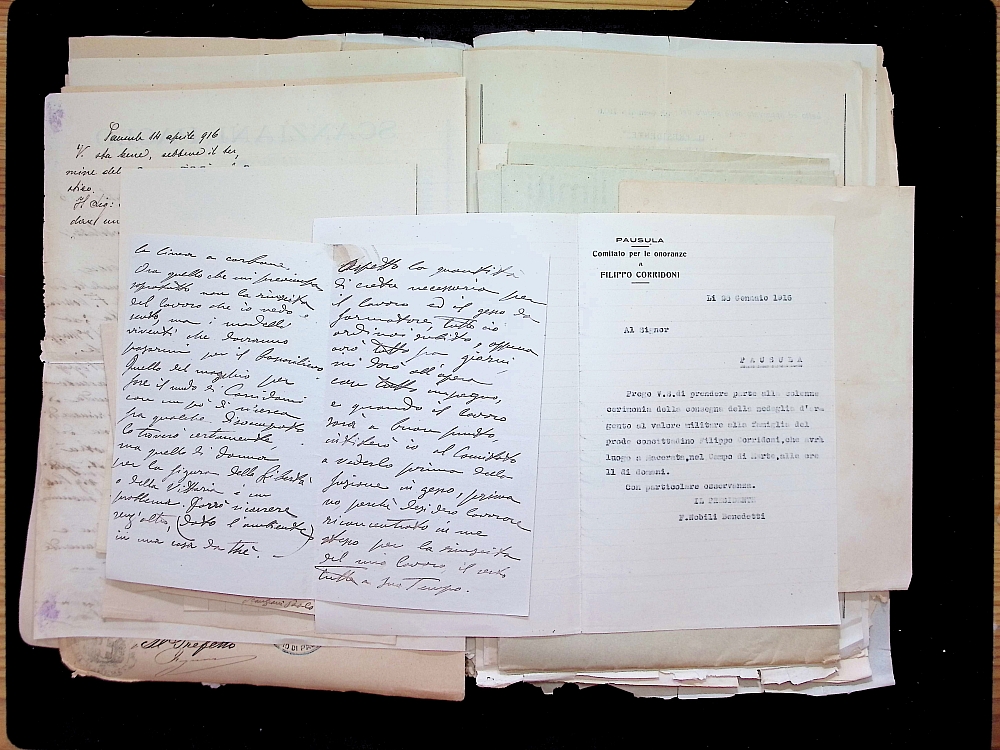 Pausula 14 aprile 916
V. sta bene, sebbene il ter,
mine del
stico.
Il Sig:
le linee a carbone.
Ora quello che mi preoccupa
soprattutto non la riuscita
del lavoro che io vedo e
sento, ma i modelli
viventi che dovranno
posarmi per il
Quello del maschio per
fare il nudo di Corridoni
con un pò di ricerca
fra qualche disoccupato
lo troverò certamente,
ma quello di donna
per la figura della Libertà
o della Vittoria è un
problema. Dovrò ricorrere
senz'altro, (dato l'ambiente)
in una casa da thè. -
Aspetto la quantità
di creta necessaria per
il lavoro ed il gesso da
formatore, tutto ciò
ordinai subito, appena
avrò tutto fra giorni,
mi darò all'opera
con tutto impegno,
e quando il lavoro
sarà a buon punto,
inviterò io il Comitato
a vederlo prima della
fusione in gesso, prima
no perchè desidero lavorare
riconcentrato in me
stesso per la riuscita
del mio lavoro, il resto
tutto a suo Tempo.
PAUSULA
Comitato per le onoranze
a
FILIPPO CORRIDONI
Li 28 Gennaio 1916
Al Signor
PAUSULA
Prego V.S.di prendere parte alla solenne
cerimonia della consegna della medaglia d'ar
gento al valore militare alla famiglia del
prode concittadino Filippo Corridoni,che avrà
luogo a Macerata,nel Campo di Marte,alle ore
11 di domani.
Con particolare osservanza.
IL PRESIDENTE
F.Nobili Benedetti
Il Prefetto